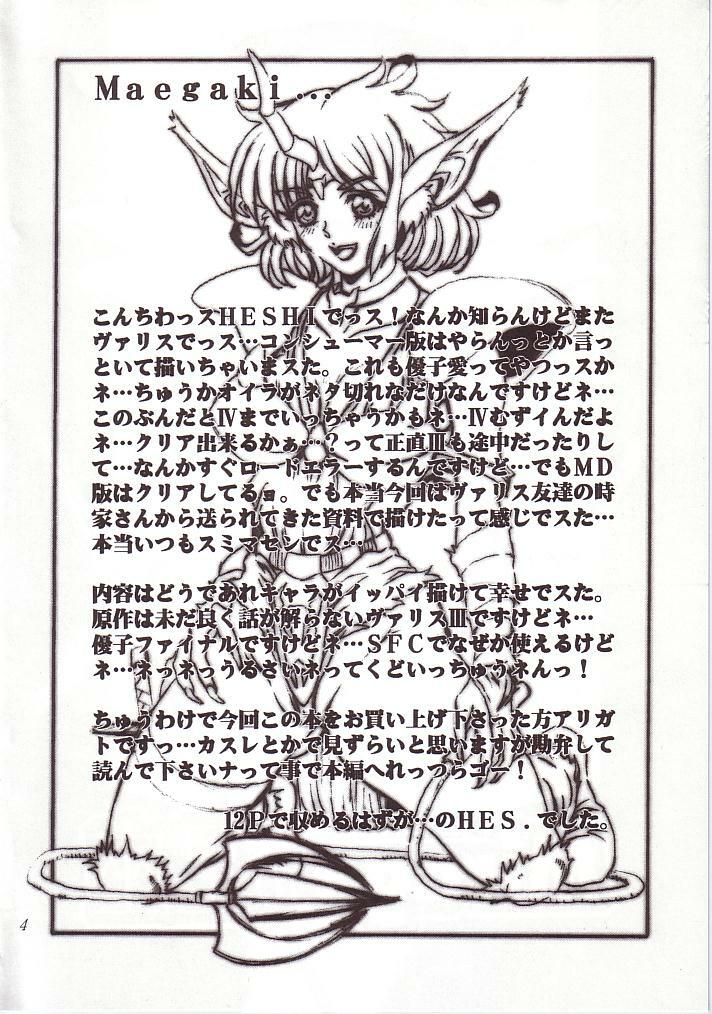 Maegaki...
こんちわっスHESHIでっス！なんか知らんけどまた
ヴァリスでっス…コンシューマー版はやらんっとか言っ
といて描いちゃいまスた。これも優子愛ってやつっスか
ネ…ちゅうかオイラがネタ切れなだけなんですけどネ…
このぶんだとⅣまでいっちゃうかもネ…Ⅳむずイんだよ
ネ…クリア出来るかぁ…？って正直Ⅲも途中だったりし
て…なんかすぐロードエラーするんですけど…でもMD
版はクリアしてるョ。でも本当今回はヴァリス友達の時
家さんから送られてきた資料で描けたって感じでスた…
本当いつもスミマセンでス…
内容はどうであれキャラがイッパイ描けて幸せでスた。
原作は未だ良く話が解らないヴァリスⅢですけどネ…
優子ファイナルですけどネ…SFCでなぜか使えるけど
ネ…ネっネっうるさいネってくどいっちゅうネんっ！
ちゅうわけで今回この本をお買い上げ下さった方アリガ
トですっ…カスレとかで見ずらいと思いますが勘弁して
読んで下さいナって事で本編へれっつらゴー！
12Pで収めるはずが…のHES.でした。
4